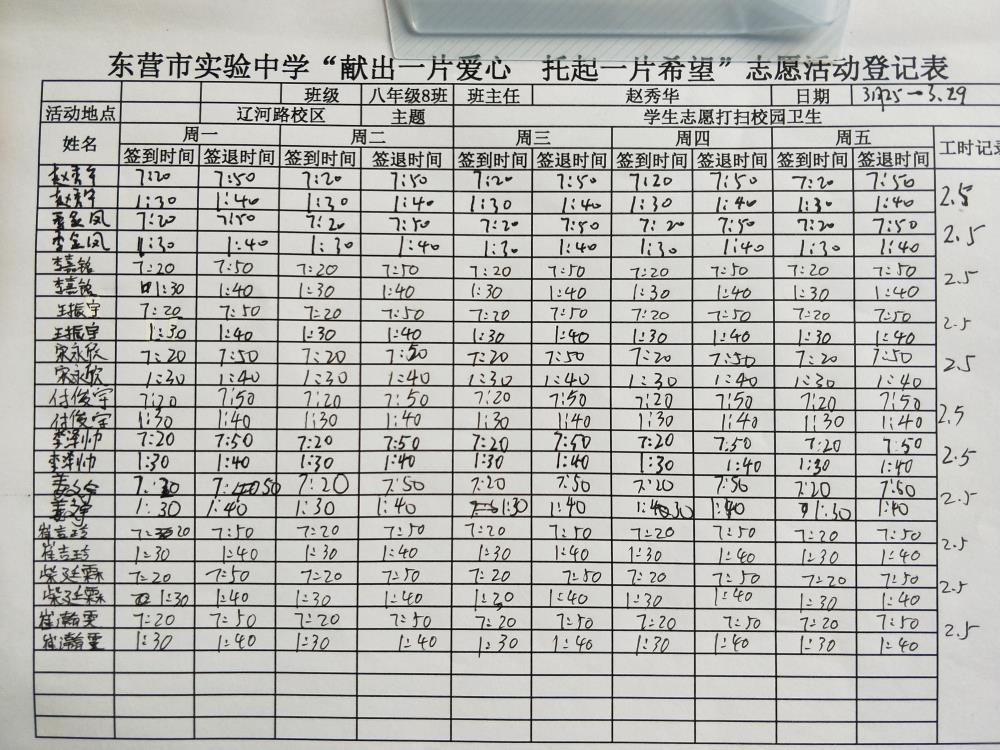 东营市实验中学“献出一片爱心 托起一片希望”志愿活动登记表
班级 八年级8班 班主任 赵秀华 日期 3月25-3.29
活动地点 辽河路校区 主题 学生志愿打扫校园卫生
姓名 周一 周二 周三 周四 周五 工时记录
签到时间 签退时间 签到时间 签退时间 签到时间 签退时间 签到时间 签退时间 签到时间 签退时间
7:20 7:50 7:20 7:50 7:20 7:50 7:20 7:50 7:20 7:50
1:30 1:40 1:30 1:40 1:30 1:40 1:30 1:40 1:30 1:40 2.5
李金凤 7:20 7:50 7:20 7:50 7:20 7:50 7:20 7:50 7:20 7:50
李金凤 1:30 1:40 1:30 1:40 1:30 1:40 1:30 1:40 1:30 1:40 2.5
李嘉铭 7:20 7:50 7:20 7:50 7:20 7:50 7:20 7:50 7:20 7:50
李嘉铭 1:30 1:40 1:30 1:40 1:30 1:40 1:30 1:40 1:30 1:40 2.5
王振宇 7:20 7:50 7:20 7:50 7:20 7:50 7:20 7:50 7:20 7:50
王振宇 1:30 1:40 1:30 1:40 1:30 1:40 1:30 1:40 1:30 1:40 2.5
宋永欣 7:20 7:50 7:20 7:50 7:20 7:50 7:20 7:50 7:20 7:50
宋永欣 1:30 1:40 1:30 1:40 1:30 1:40 1:30 1:40 1:30 1:40 2.5
付俊宇 7:20 7:50 7:20 7:50 7:20 7:50 7:20 7:50 7:20 7:50
付俊宇 1:30 1:40 1:30 1:40 1:30 1:40 1:30 1:40 1:30 1:40 2.5
李泽帅 7:20 7:50 7:20 7:50 7:20 7:50 7:20 7:50 7:20 7:50
李泽帅 1:30 1:40 1:30 1:40 1:30 1:40 1:30 1:40 1:30 1:40 2.5
7:50 7:20 7:50 7:20 7:50 7:20 7:50 7:20 7:50
1:30 1:40 1:30 1:40 1:30 1:40 1:30 1:40 1:30 1:40 2.5
崔吉珍 7:20 7:50 7:20 7:50 7:20 7:50 7:20 7:50 7:20 7:50
崔吉珍 1:30 1:40 1:30 1:40 1:30 1:40 1:30 1:40 1:30 1:40 2.5
柴廷霖 7:20 7:50 7:20 7:50 7:20 7:50 7:20 7:50 7:20 7:50
柴廷霖 1:30 1:40 1:30 1:40 1:20 1:40 1:30 1:40 1:30 1:40 2.5
崔瀚雯 7:20 7:50 7:20 7:50 7:20 7:50 7:20 7:50 7:20 7:50
崔瀚雯 1:30 1:40 1:30 1:40 1:30 1:40 1:30 1:40 1:30 1:40 2.5